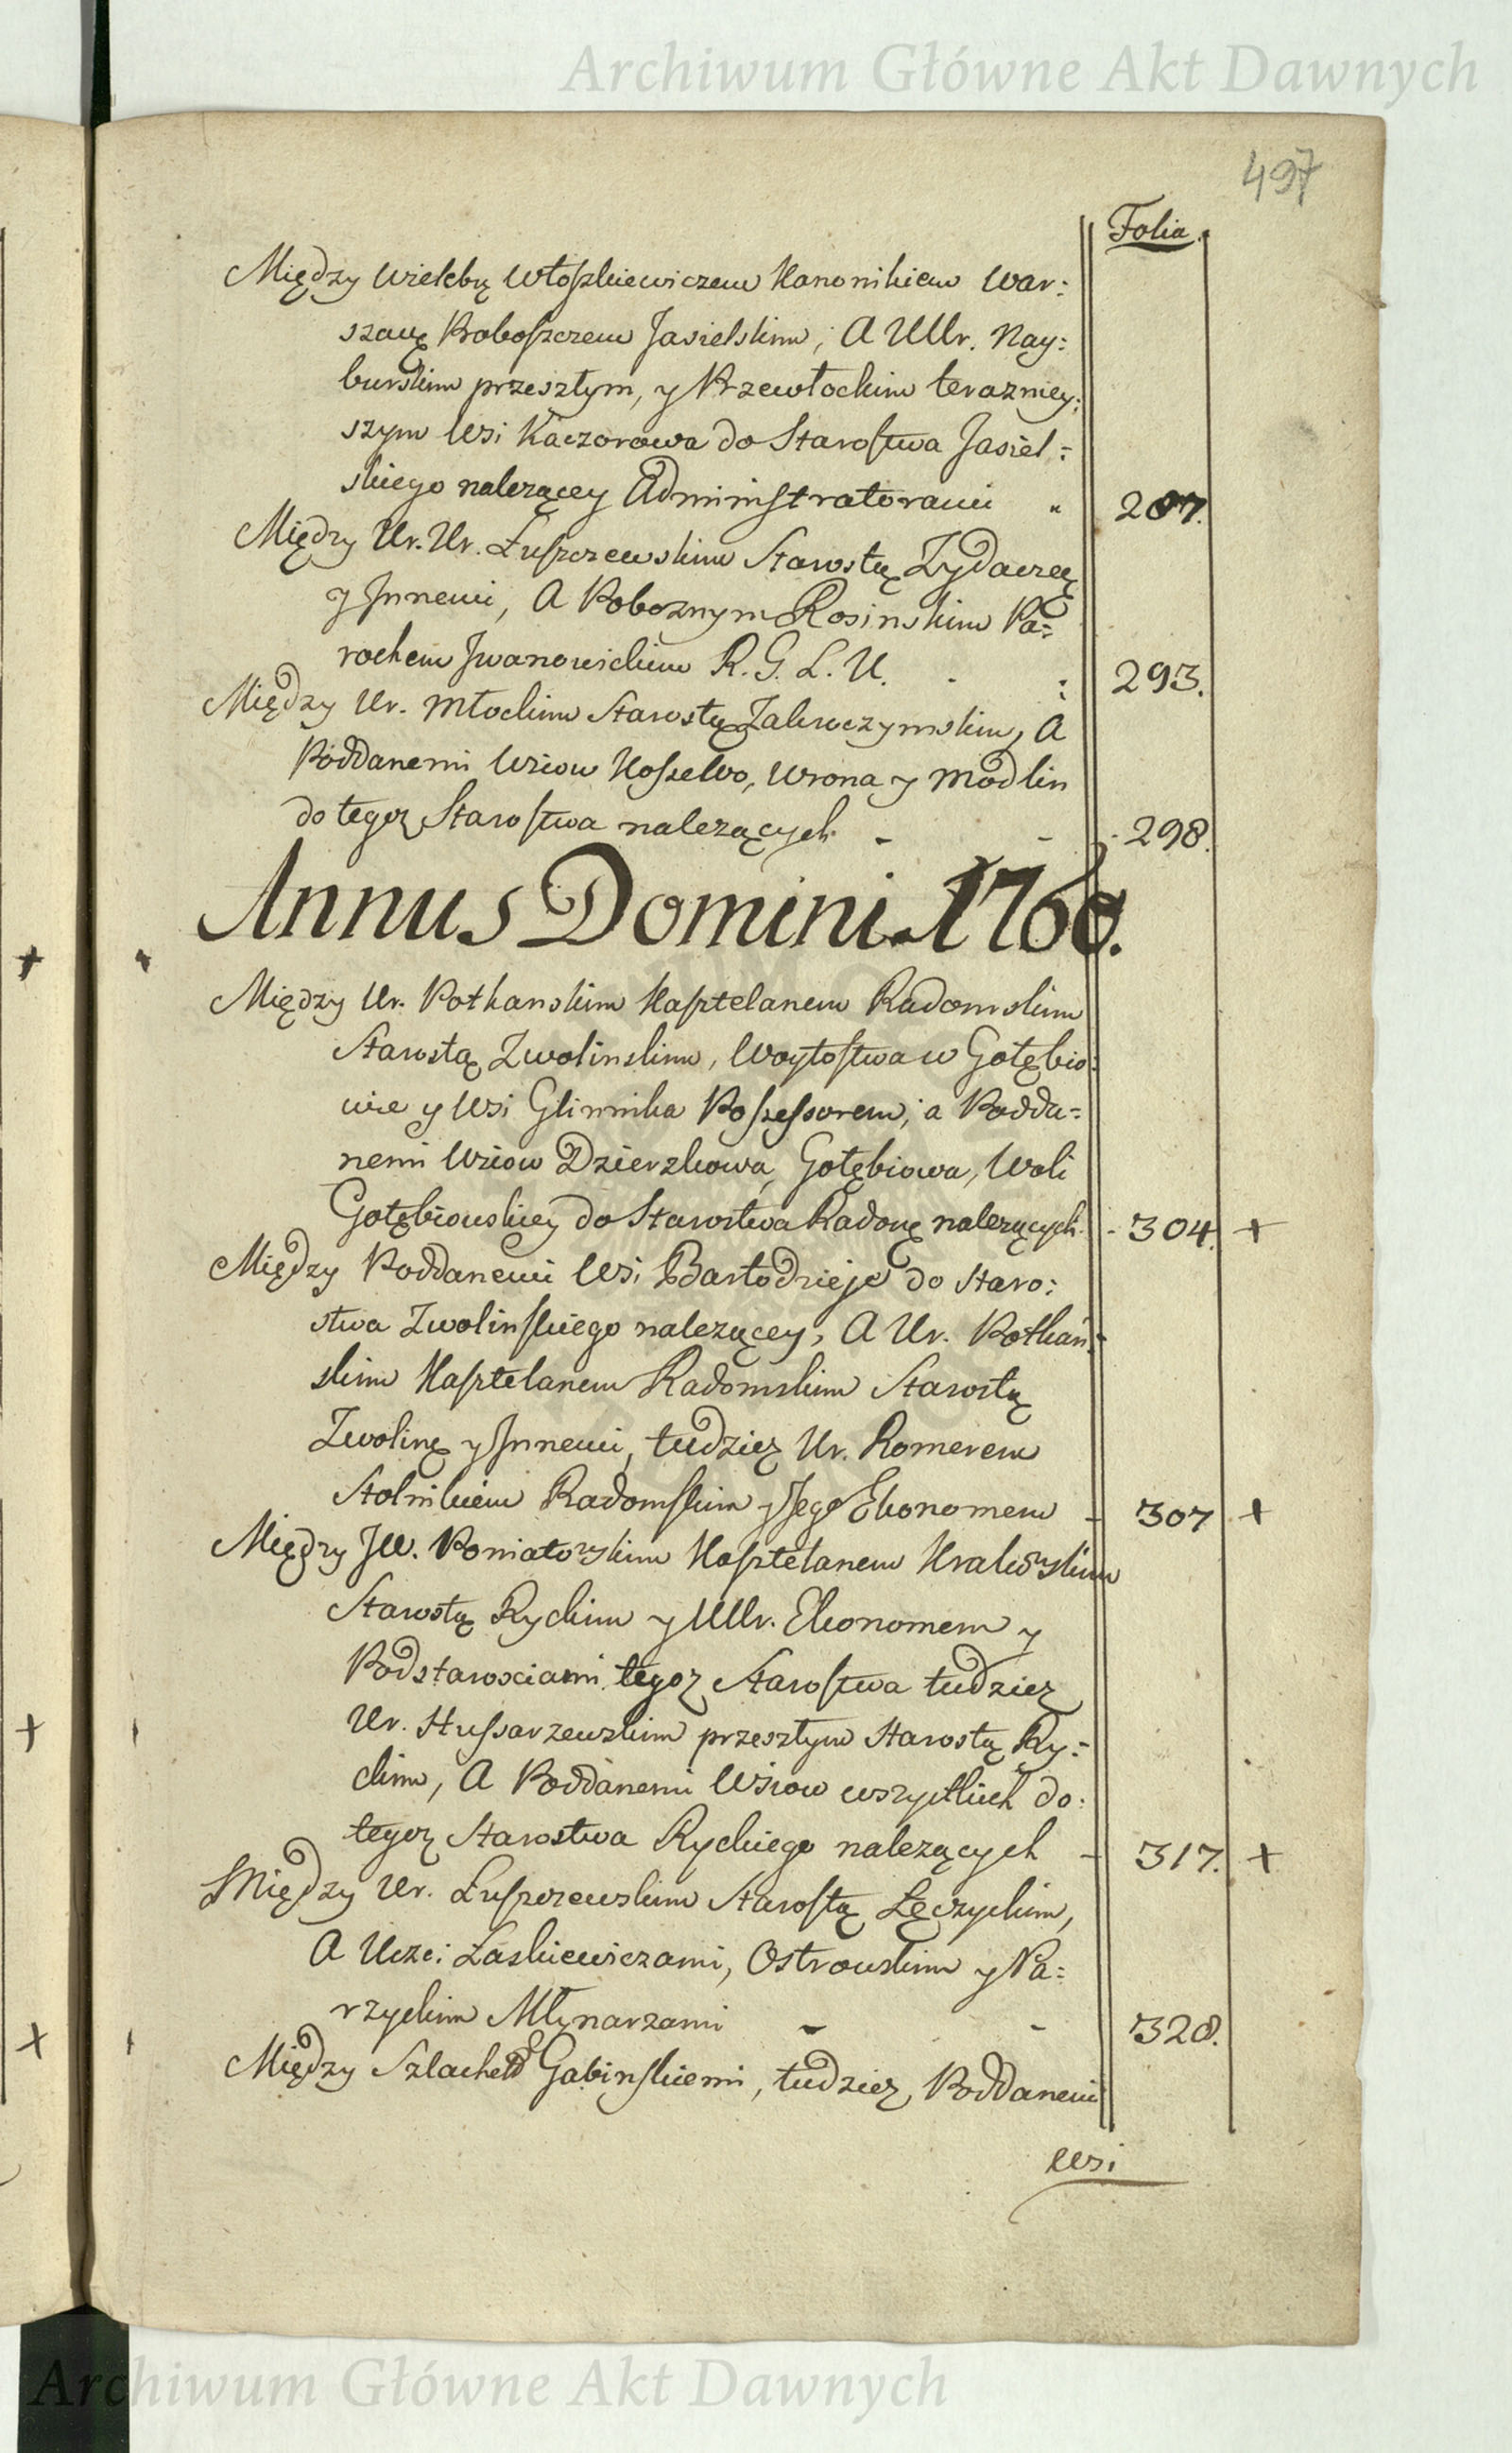 Archiwum Główne Akt Dawnych
497
Folia.
Między Wielebȩ Włoszkiewiczem Kanonikiem War:
szawȩ Proboszczem Jasielskim, A UUr. Nay:
burskim przeszłym, y Przewłockim terazniey:
szym Wsi Kaczorowa do Starostwa Jasiel:
skiego nalezącey Administratorami 287.
Między Ur. Ur. Łuszczewskim Starostą Zydaczȩ
y Jnnemi, A Poboznym Rosinskim Pa:
rochem Jwanowickim R. G. L. U. 293.
Między Ur. Młockim Starostą Zakroczymskim, A
Poddanemi Wsiow Koszewo, Wrona y Modlin
do tegoz Starostwa nalezących - - 298.
Annus Domini 1760.
Między Ur. Potkanskim Kasztelanem Radomskim
Starostą Zwolinskim, Woytostwa w Gołębio:
wie y Wsi Glinnika Possessorem, a Podda:
nemi Wsiow Dzierzkowa, Gołębiowa, Woli
Gołębiowskiey do Starostwa Radoȩ nalezących - 304. +
Między Poddanemi Wsi Bartodzieje do Staro:
stwa Zwolinskiego nalezącey, A Ur. Potkań:
skim Kasztelanem Radomskim Starostą
Zwolinȩ y Jnnemi, tudziez Ur. Romerem
Stolnikiem Radomskim y Jego Ekonomem - 307 +
Między JW. Poniatowskim Kasztelanem Krakowskim
Starostą Ryckim y UUr. Ekonomem y
Podstarosciami tegoz Starostwa tudziez
Ur. Hussarzewskim przeszłym Starostą Ry:
ckim, A Poddanemi Wsiow wszystkich do
tegoz Starostwa Ryckiego nalezących - 317. +
Między Ur. Łuszczewskim Starostą Łęczyckim,
A Uczci: Laskiewiczami, Ostrowskim y Pa:
rzyckim Młynarzami - - 328.
Między Szlachet Gabinskiemi, tudziez Poddanemi
Wsi
Archiwum Główne Akt Dawnych